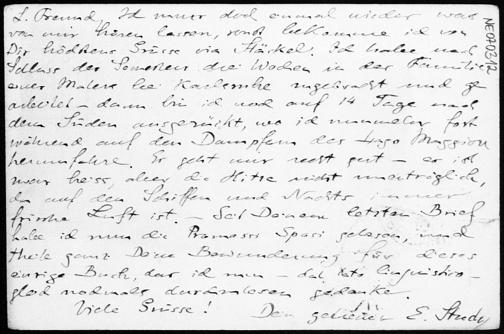 L. Freund, Ich muss doch einmal wieder was
von mir hören lassen, sonst bekomme ich von
Dir höchstens Grüsse via Häckel. Ich habe nach
Schluss des Semesters drei Wochen in der Familie
eines Malers bei Karlsruhe zugebracht und ge
arbeitet – dann bin ich noch auf 14 Tage nach
dem Süden ausgerückt, wo ich nunmehr fort
während auf den Dampfern des Lago Maggiore
herumfahre. Es geht mir recht gut – es ist
zwar heiss, aber die Hitze nicht unerträglich,
da auf den Schiffen und Nachts immer
frische Luft ist. – Seit Deinem letzten Brief
habe ich nun die Promessi Sposi gelesen, und
theile ganz Deine Bewunderung für dieses
einzige Buch, das ich nun –
nochmals durchzulesen gedenke.
Viele Grüsse! Dein getreuer E. Study
NE070312